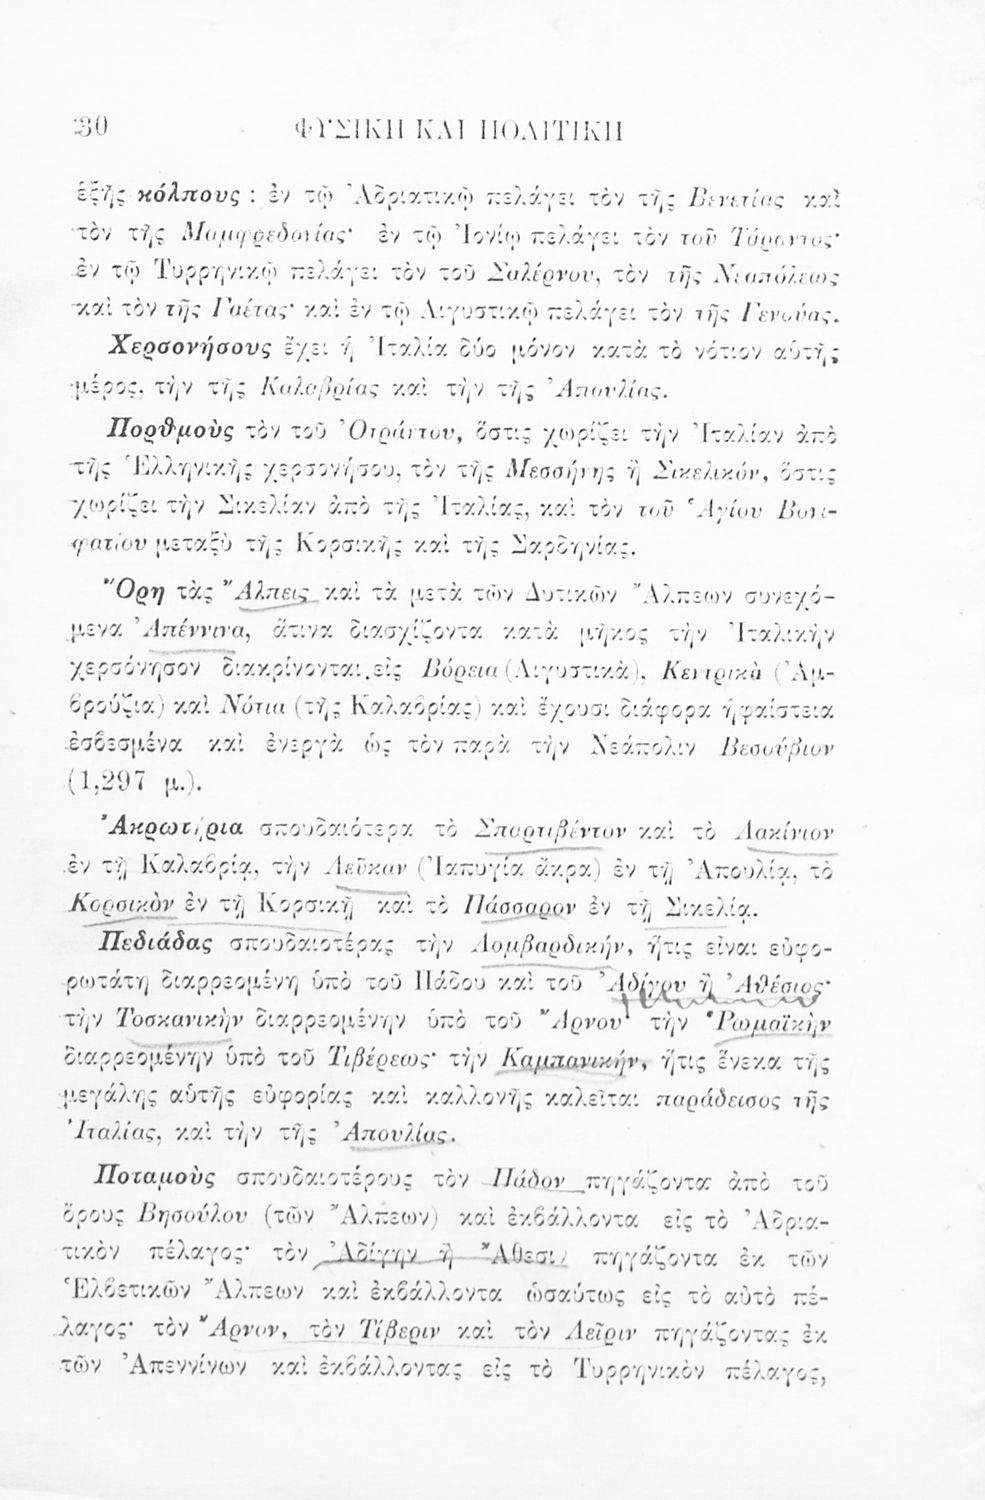 30 ΦΥΣΙΚΗ ΚΑΙ ΠΟΛΙΤΙΚΗ
ἑξῆς κόλπους : ἐν τῷ Ἀδριατικῷ πελάγει τὸν τῆς Βενετίας καὶ
τὸν τῆς Μαμφρεδονίας· ἐν τῷ Ἰονίῳ πελάγει τὸν τοῦ Τάραντος·
ἐν τῷ Τυρρηνικῷ πελάγει τὸν τοῦ Σαλέρνου, τὸν τῆς Νεαπόλεως
καὶ τὸν τῆς Γαέτας· καὶ ἐν τῷ Λιγυστικῷ πελάγει τὸν τῆς Γενούας.
Χερσονήσους ἔχει ἡ Ἰταλία δύο μόνον κατὰ τὸ νότιον αὐτῆς
μέρος, τὴν τῆς Καλαβρίας καὶ τὴν τῆς Ἀπουλίας.
Πορθμοὺς τὸν τοῦ Ὀτράντου, ὅστις χωρίζει τὴν Ἰταλίαν ἀπὸ
τῆς Ἑλληνικῆς χερσονήσου, τὸν τῆς Μεσσήνης ἢ Σικελικόν, ὅστις
χωρίζει τὴν Σικελίαν ἀπὸ τῆς Ἰταλίας, καὶ τὸν τοῦ Ἁγίου Βονι-
φατίου μεταξὺ τῆς Κορσικῆς καὶ τῆς Σαρδηνίας.
Ὄρη τὰς Ἄλπεις καὶ τὰ μετὰ τῶν Δυτικῶν Ἄλπεων συνεχό-
μενα Ἀπέννινα, ἅτινα διασχίζοντα κατὰ μῆκος τὴν Ἰταλικὴν
χερσόνησον διακρίνονται εἰς Βόρεια (Λιγυστικὰ), Κεντρικὰ (Ἀμ-
βρούζια) καὶ Νότια (τῆς Καλαβρίας) καὶ ἔχουσι διάφορα ἡφαίστεια
ἐσβεσμένα καὶ ἐνεργὰ ὡς τὸν παρὰ τὴν Νεάπολιν Βεσούβιον
(1,297 μ.).
Ἀκρωτήρια σπουδαιότερα τὸ Σπαρτιβέντον καὶ τὸ Λακίνιον
ἐν τῇ Καλαβρίᾳ, τὴν Λεῦκαν (Ἰαπυγία ἄκρα) ἐν τῇ Ἀπουλίᾳ, τὸ
Κορσικὸν ἐν τῇ Κορσικῇ καὶ τὸ Πάσσαρον ἐν τῇ Σικελίᾳ.
Πεδιάδας σπουδαιοτέρας τὴν Λομβαρδικήν, ἥτις εἶναι εὐφο-
ρωτάτη διαρρεομένη ὑπὸ τοῦ Πάδου καὶ τοῦ Ἀδίγου ἢ Ἀθέσιος·
τὴν Τοσκανικὴν διαρρεομένην ὑπὸ τοῦ Ἄρνου· τὴν Ῥωμαϊκὴν
διαρρεομένην ὑπὸ τοῦ Τιβέρεως· τὴν Καμπανικήν, ἥτις ἕνεκα τῆς
μεγάλης αὐτῆς εὐφορίας καὶ καλλονῆς καλεῖται παράδεισος τῆς
Ἰταλίας, καὶ τὴν τῆς Ἀπουλίας.
Ποταμοὺς σπουδαιοτέρους τὸν Πάδον πηγάζοντα ἀπὸ τοῦ
ὄρους Βησούλου (τῶν Ἄλπεων) καὶ ἐκβάλλοντα εἰς τὸ Ἀδρια-
τικὸν πέλαγος· τὸν Ἀδίγην ἢ Ἄθεσιν πηγάζοντα ἐκ τῶν
Ἑλβετικῶν Ἄλπεων καὶ ἐκβάλλοντα ὡσαύτως εἰς τὸ αὐτὸ πέ-
λαγος· τὸν Ἄρνον, τὸν Τίβεριν καὶ τὸν Λεῖριν πηγάζοντας ἐκ
τῶν Ἀπεννίνων καὶ ἐκβάλλοντας εἰς τὸ Τυρρηνικὸν πέλαγος,